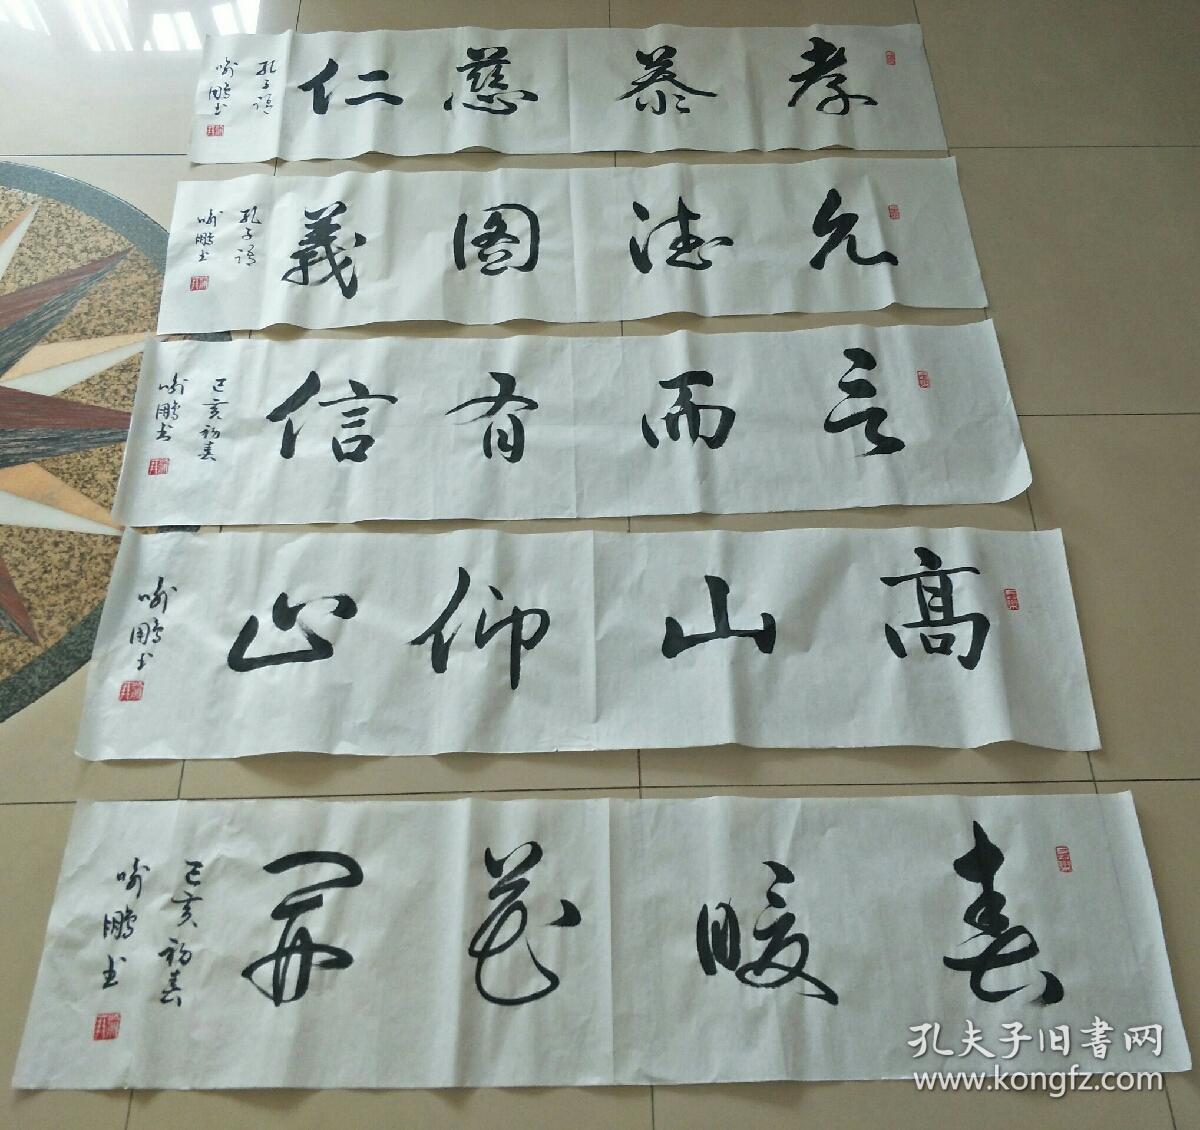 孝恭慈仁
孔子语
喻鹏书
允德图義
孔子语
喻鹏书
言而有信
己亥初春
喻鹏书
高山仰止
喻鹏书
春暖花开
己亥初春
喻鹏书
孔夫子旧书网
www.kongfz.com